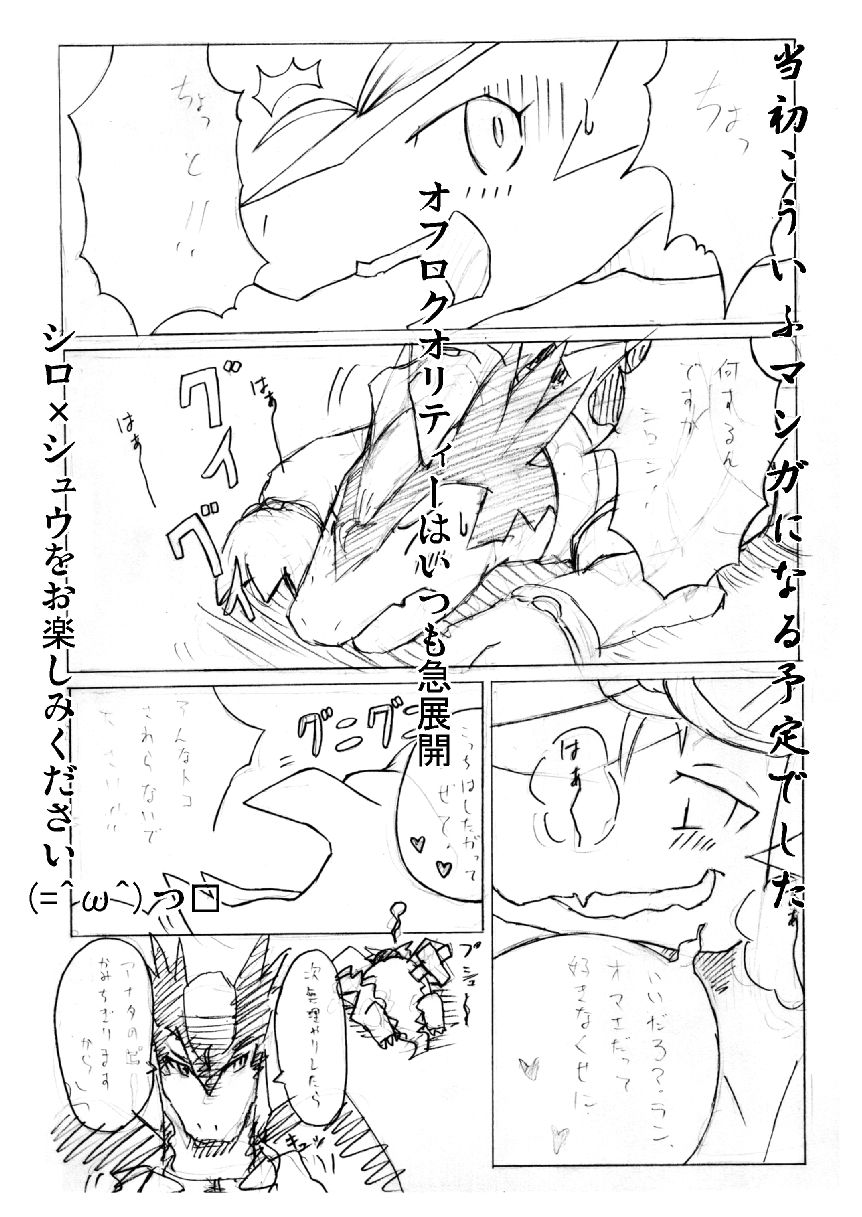 当初こういふマンガになる予定でした
オフロクオリティーはいつも急展開
シロ×シュウをお楽しみください
(=^ω^)つ□
ちょっ
ちょっ
と!!
何するん
ですか
グイ
グイ
はぁ
はぁ
はぁ
いいだろ?ラン、
オマエだって
好きなくせに
グニグニ
こっちはしたがって
ぜて
そんなトコ
さわらないで
ださい!!
ブシュー
次無理やりしたら
アナタの
かみちぎります
から
キュッ